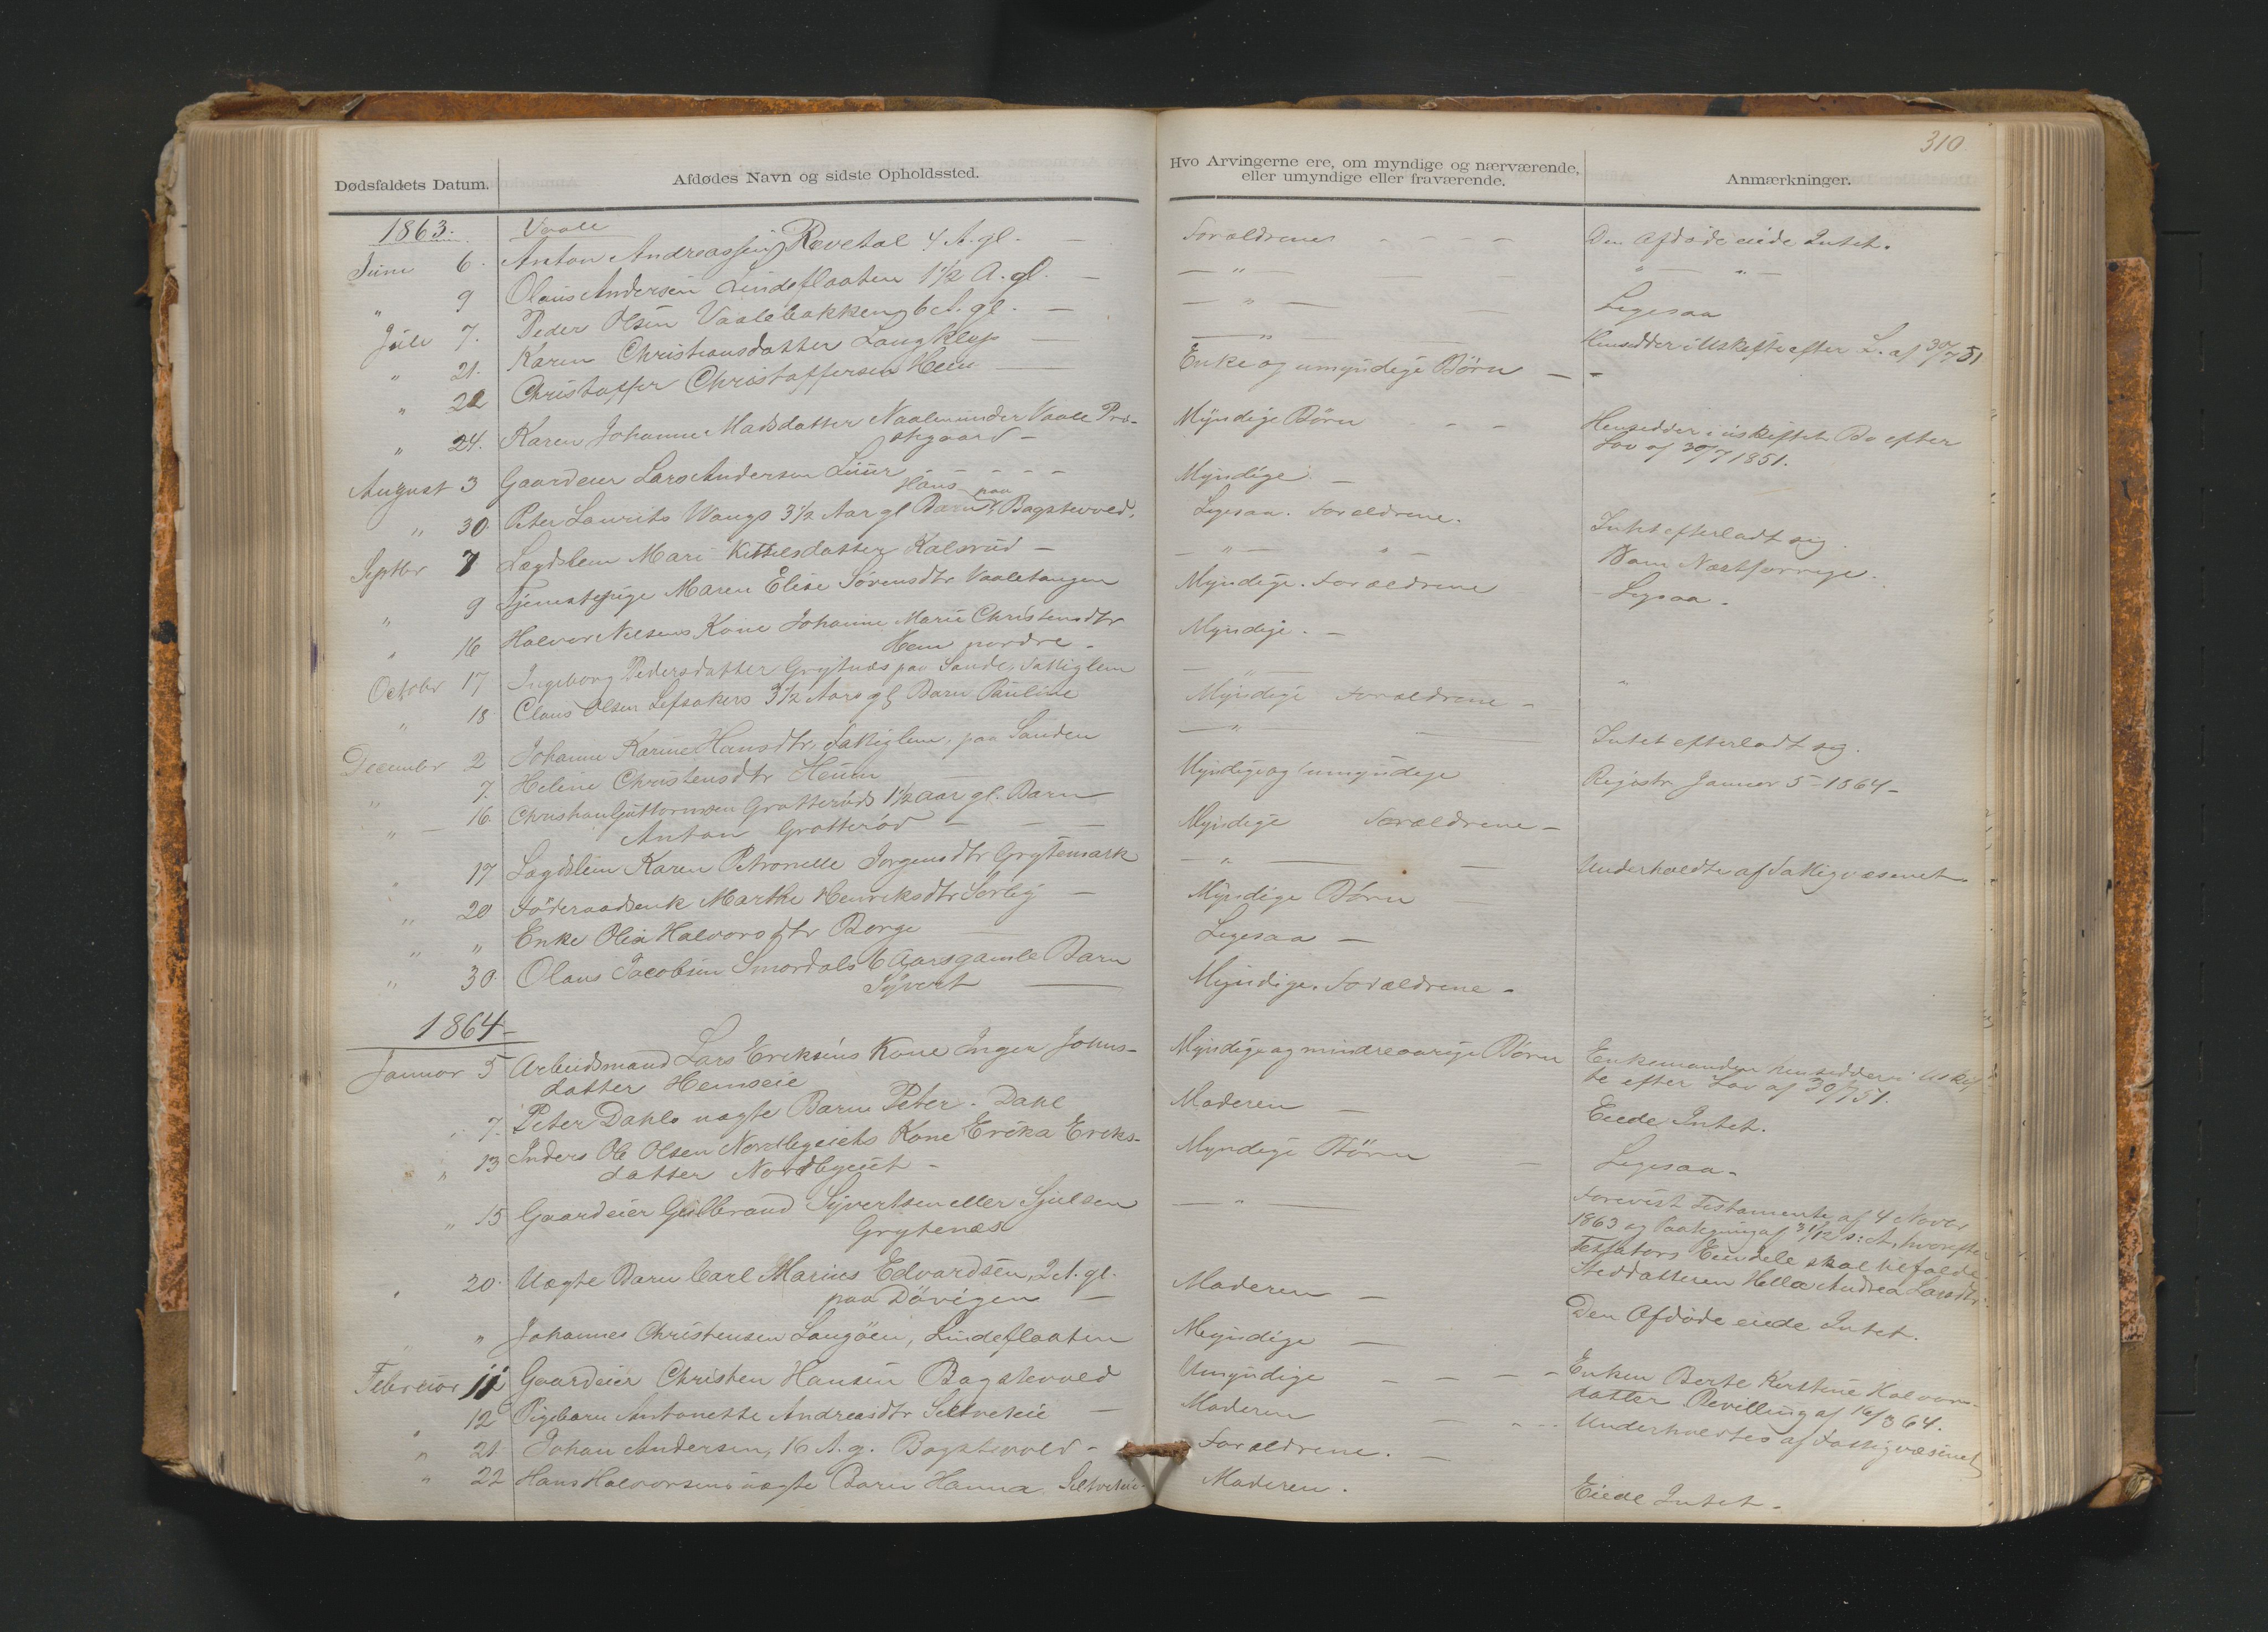 310
Dødsfaldets Datum.
Afdødes Navn og sidste Opholdssted.
Hvo Arvingerne ere, om myndige og nærværende,
eller umyndige eller fraværende.
Anmærkninger.
1863.
Vaale
Juni 6. Anton Andreassen Revetal 4 A. gl. — Forældrene - - - - Den Afdøde eiede Intet.
" 9 Olaus Andersen Lindeflaaten 1 1/2 A. gl. — — " — — " — " —
Juli 7. Peder Olsen Vaalebakken 6 A. gl. — — " — — Ligesaa
" 21. Karen Christiansdatter Langklep — — " — Hensidder i Uskifte efter L. af 30/7 51
" 22 Christoffer Christoffersen Hem — Enke og umyndige Børn — -
" 24. Karen Johanne Madsdatter under Vaale Præ- Myndige Børn - - Hensidder i uskiftet Bo efter
stegaard - Lov af 30/7 1851.
August 3 Gaardeier Lars Andersen - - - - Myndige —
Hans paa
" 30. Peter Laurits Wangs 3 1/2 Aar gl Barn Bagstevold. Ligesaa. Forældrene. Intet efterladt sig.
Septbr 7 Lægdslem Mari Kittelsdatter Kalsrud — — " — " — Som Næstforrige.
" 9 Tjenestepige Maren Elise Sørensdtr Vaaletangen Myndige. Forældrene - Ligesaa.
" 16 Halvor Nilsens Kone Johanne Marie Christensdtr Myndige. —
Hem nordre -
October 17 Ingeborg Pedersdatter Grytnæs paa Sande, Fattiglem — " — "
" 18 Claus Olsen Lefsakers 3 1/2 Aars gl Barn Pauline Myndige Forældrene -
December 2 Johanne Karine Hansdtr, Fattiglem, paa Sanden — " — — Intet efterladt sig.
" 7. Heline Christensdtr — Myndige og umyndige Registr. Januar 5 - 1864 -
" — 16. Christian Guttormsen Gratterøds 1 1/2 aar gl. Barn Myndige Forældrene —
Anton Gratterød — — —
" 17 Lægdslem Karen Petronelle Jørgensdtr Grytemark — " — — Underholdtes af Fattigvæsenet.
" 20 Føderaadsenk Marthe Henriksdtr Sørby — Myndige Børn
" " Enke Olea Halvorsdtr Borge — Ligesaa —
" 30. Olaus Jacobsen Smørdals 6 Aarsgamle Barn Myndige. Forældrene -
Syvert —
1864
Januar 5 Arbeidsmand Lars Eriksens Kone Inger Johns- Myndige og mindreaarige Børn Enkemanden hensidder i Uskif
datter Hemseie te efter Lov af 30/7 51.
" 7. Peter Dahls uægte Barn Peter - Dahl Moderen — Eiede Intet.
" 13 Inders Ole Olsen Nordbyeiets Kone Erika Eriks- Myndige Børn — Ligesaa -
datter Nordbyeiet -
" 15 Gaardeier Gulbrand Syvertsen eller Sjulsen — " — Forevist Testamente af 4 Novbr
Grytenæs 1863 og Paategning af 31/12 s. A., hvorefter
Testators Eiendele skal tilfalde
Steddatteren Hella Andrea Larsdtr.
" 20. Uægte Barn Carl Marius Edvardsen, 2 A. gl. Moderen —
paa Døvigen — Den Afdøde eiede Intet.
" " Johannes Christensen Langøen, Lindeflaaten Myndige —
Februar 11 Gaardeier Christen Hansen Bagstevold Umyndige - - - - Enken Berte Kirstine Halvors-
datter Bevilling af 16/3 64.
" 12 Pigebarn Antonette Andreasdtr Seltveteie — Moderen — - - - Underholdtes af Fattigvæsenet
" 21 Johan Andersen, 16 A. g. Bagstevold - Forældrene. —
" 22 Hans Halvorsens uægte Barn Hanna Seltveteie Moderen. Eiede Intet -